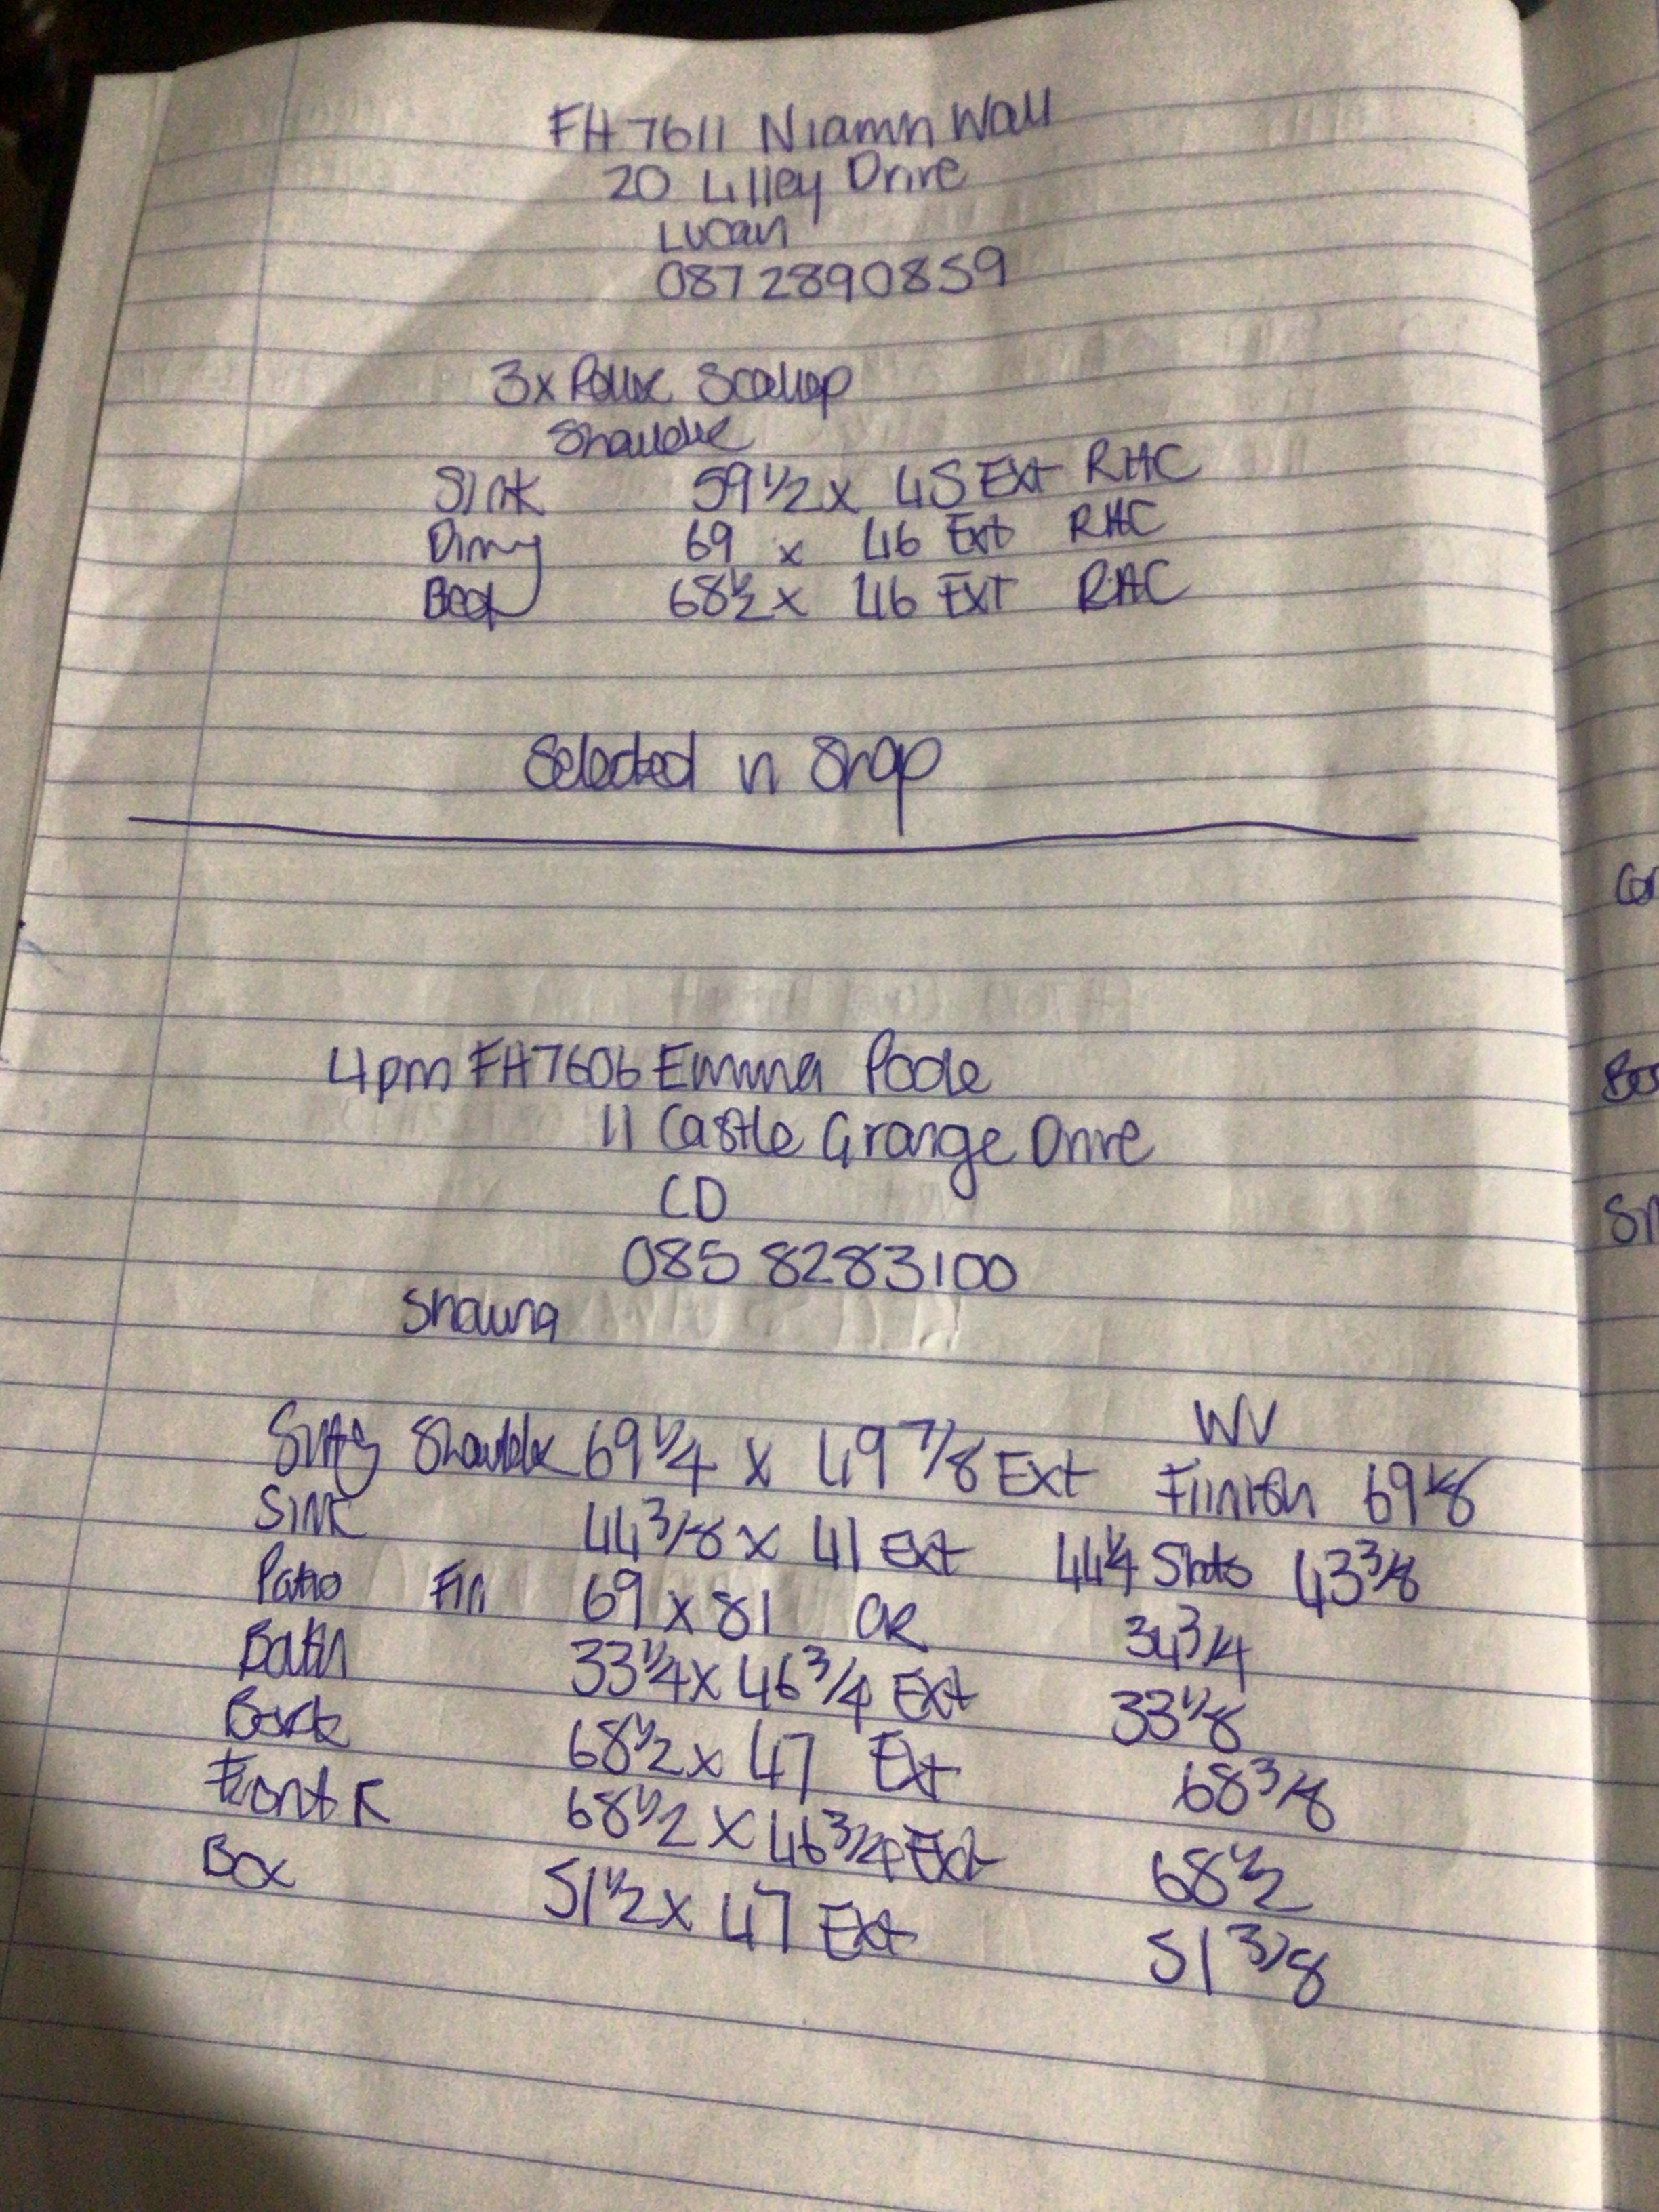 FH7611 Niamh Wall
20 Lilley Drive
Lucan
087 2890859
3x Roller Scallop
Shaulue
Sink 59 1/2 x 45 Ext RHC
Dining 69 x 46 Ext RHC
Bed 68 1/2 x 46 Ext RHC
Selected in Shop
4pm FH7606 Emma Poole
11 Castle Grange Drive
CD
085 8283100
Shauna
WV
Sitting 69 1/4 x 49 7/8 Ext Finish 69 1/8
Sink 44 3/8 x 41 Ext 44 1/4 Slats 43 3/8
Patio Fin 69 x 81 OR 34 3/4
Bath 33 1/4 x 46 3/4 Ext 33 1/8
Back 68 1/2 x 47 Ext 68 3/8
Front R 68 1/2 x 46 3/4 Ext 68 1/2
Box 51 1/2 x 47 Ext 51 3/8
Con
Sin